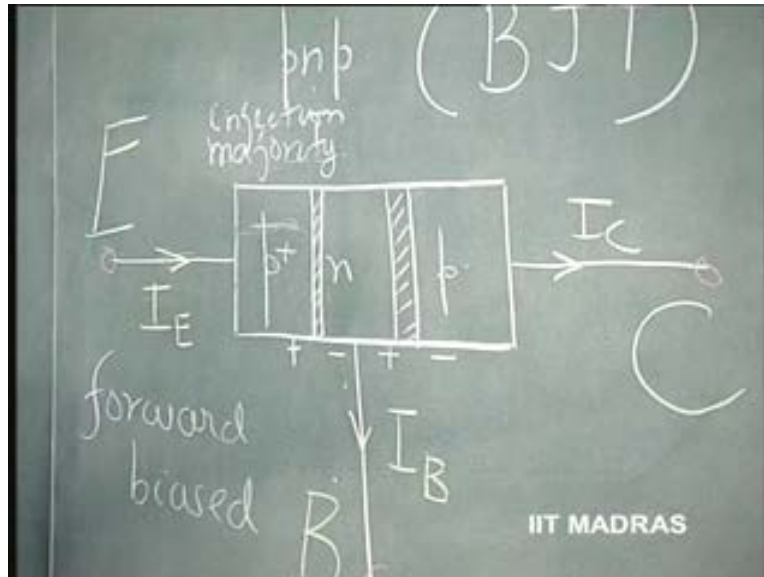 pnp
(BJT)
injection
majority
E
p+
n
p
I_E
I_C
C
+ - + -
forward
biased
I_B
B
IIT MADRAS